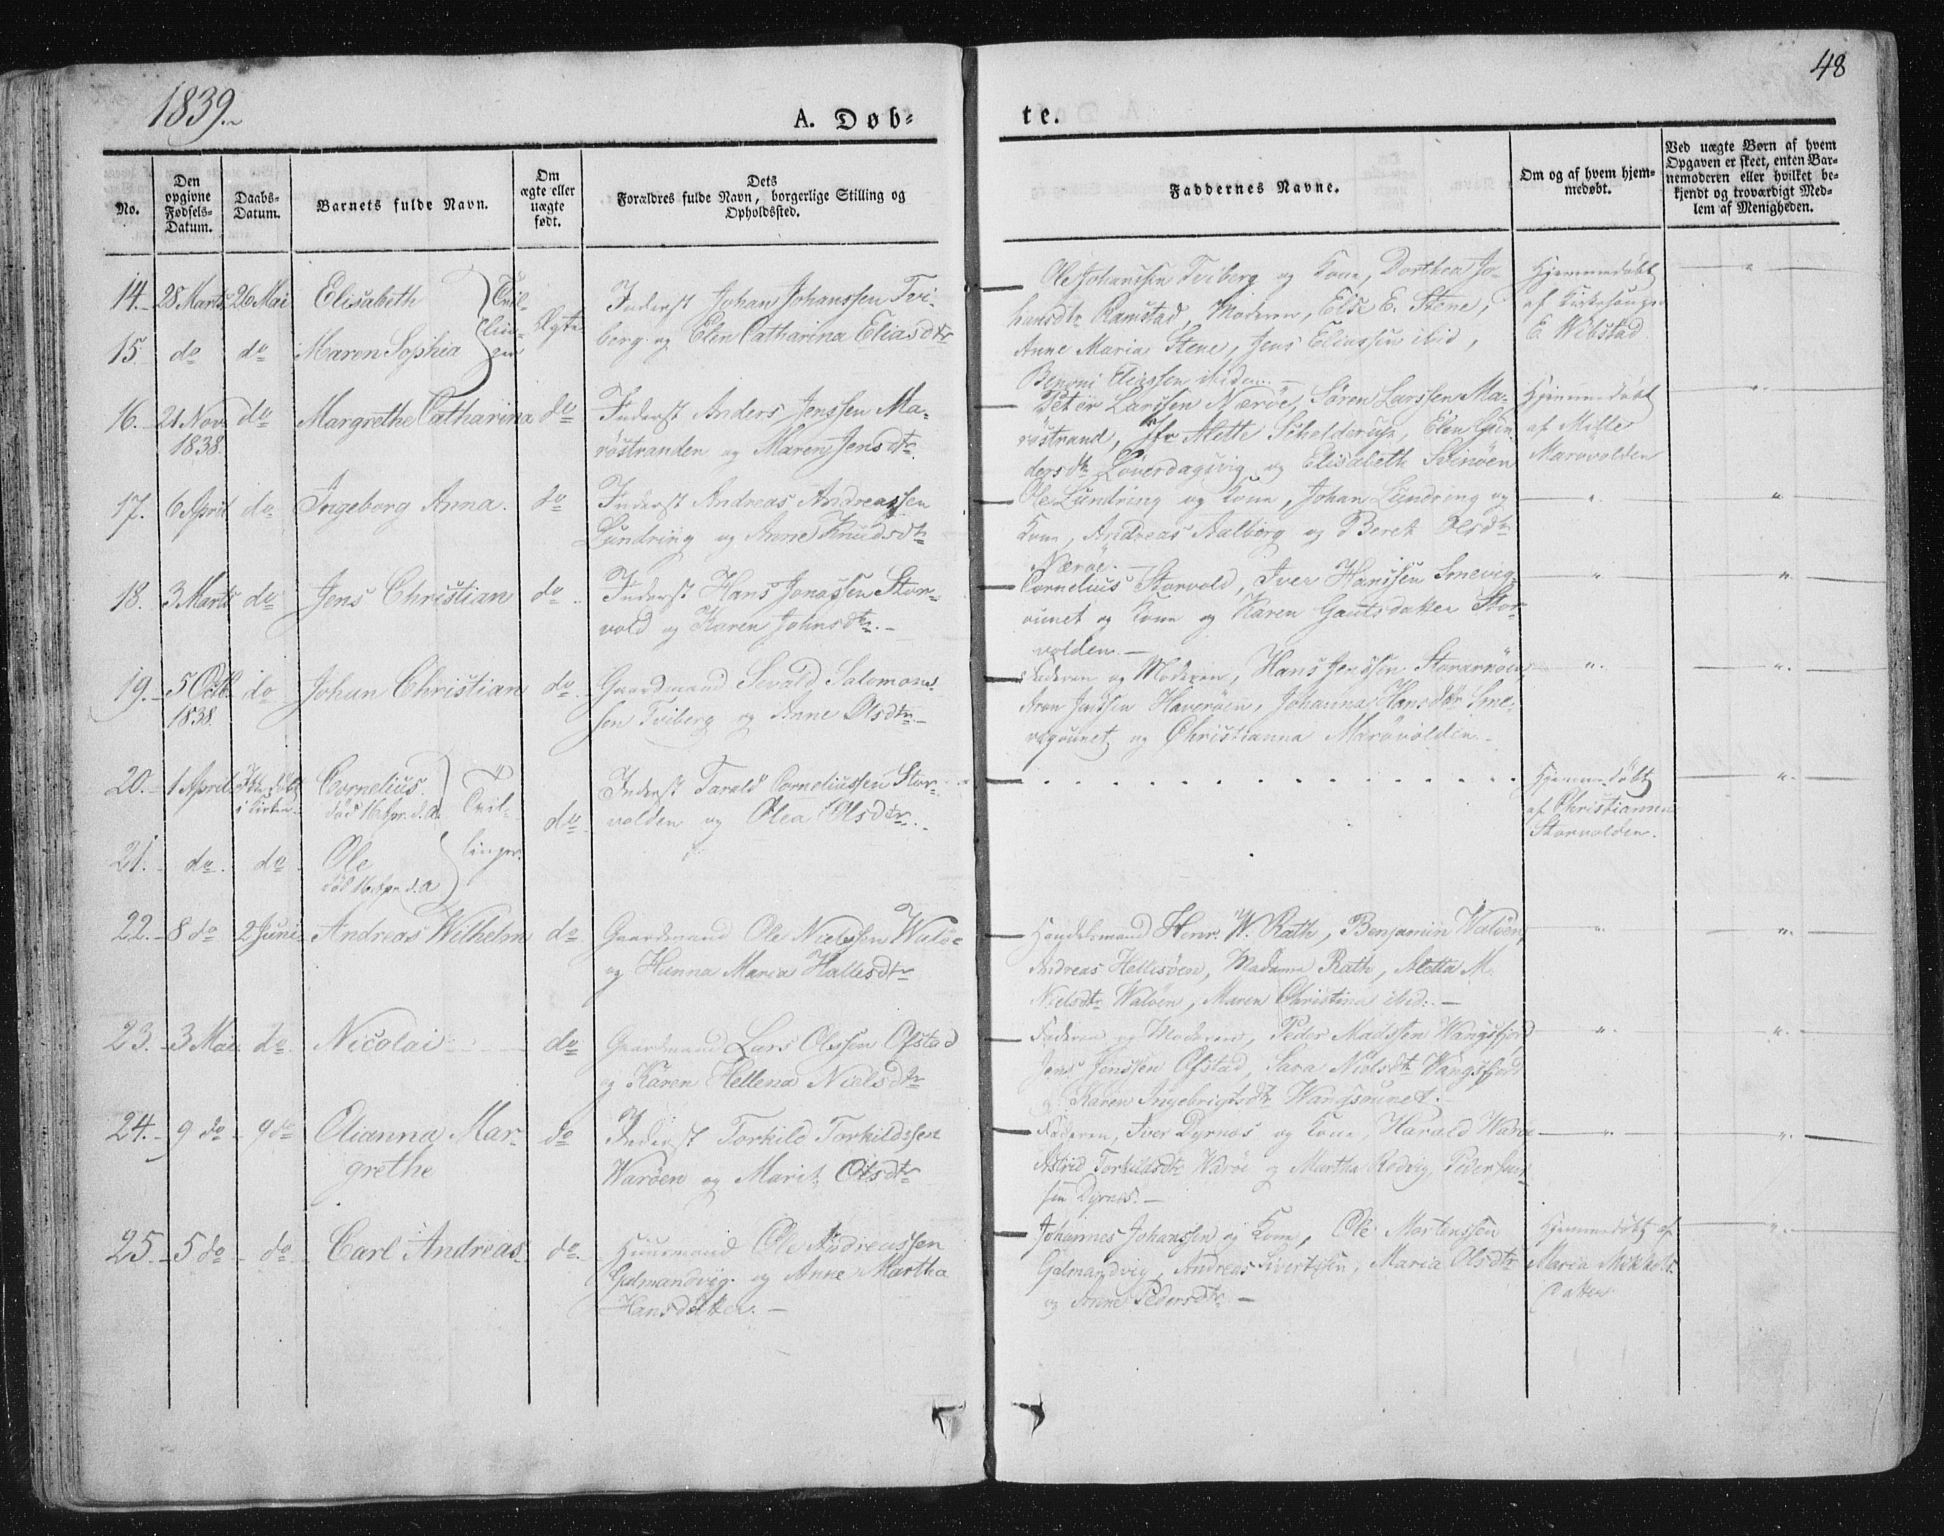 1839.
48
A. Døb=
te.
No.
Den opgivne Fødsels-Datum.
Daabs-Datum.
Barnets fulde Navn.
Om ægte eller uægte født.
Dets Forældres fulde Navn, borgerlige Stilling og Opholdssted.
Faddernes Navne.
Om og af hvem hjemmedøbt.
Ved uægte Børn af hvem
Opgaven er skeet, enten Bar-
nemoderen eller hvilket be-
kjendt og troværdigt Med-
lem af Menigheden.
14. 28 Marts 26 Mai Elisabeth Tvil- Inderst Johan Johanssen Tvi-
15 do do Maren Sophia lin- ger Ægte borg og Elen Catharina Eliasdtr
Ole Johanssen Tviberg og Kone, Dorthea Jo-
hansdtr Ramstad, Moderen, Else E. Stene,
Anne Maria Stene, Jens Eliassen ibid,
Benoni Eliassen ibidem. –
Hjemmedøbt
af Kirkesanger
E. Webstad
16. 21 Nov 1838. do Margrethe Catharina do Inderst Anders Jenssen Ma-
röstranden og Maren Jensdtr.
Peter Larssen Næröe, Sören Larssen Ma-
röstrand, Jfr Alette Schelderup, Elen
dersdtr Loverdagsvig og Elisabeth Svinöen
Hjemmedøbt
af Mille
Marövolden
17. 6 April do Ingeborg Anna. do Inderst Andreas Andreassen
Lundring og Anne Knudsdtr
Ole Lundring og Kone, Johan Lundring og
Kone, Andreas Aalborg og Beret Olsdtr
Næröe. –
18. 3 Marts do Jens Christian do. Inderst Hans Jonassen Stor-
vold og Karen Johnsdtr. –
Cornelius Storvold, Iver Hanssen Smevig-
ounet og Kone og Karen Gautsdatter Stor-
volden –
19. 5 Octb. 1838. do Johan Christian do. Gaardmand Sevald Salomons-
sen Tviberg og Anne Olsdtr. –
Faderen og Moderen, Hans Jenssen Storarnöen
Aron Haveröen, Johanna Hansdtr Sme-
vigounet og Christianna Marövolden –
20. 1 April Cornelius. Tvil- Inderst Tarald Corneliussen Stor-
död 16 Apr. d.A. do. volden og Olea Olsdtr.
Hjemmedøbt
af Christianna
Storvolden.
21. do. do. Ole linger.
död 16 Apr. d.A
22. 8 do 2 Juni Andreas Wilhelm do Gaardmand Ole Nielssen Walö-
og Hanna Maria Hallesdtr
Handelsmand Henr. W. Rath, Benjamin Walöen,
Andreas Hellisöen, Madame Rath, Aletta M.
Nielsdtr Walöen, Maren Christina ibid. –
23. 3 Mai do. Nicolai do Gaardmand Lars Olssen Ofstad
og Karen Hellena Nielsdtr
Faderen og Moderen, Peder Madssen Wangsfjord
Jens Jenssen Ofstad, Sara Nielsdtr Wangsfjord
Karen Ingebrigtsdtr Wangsounet. –
24. 9 do 9 do Olianna Mar- do Inderst Torkild Torkildssen
grethe Waröen og Marit Olsdtr
Faderen, Iver Dyrnes og Kone, Harald Warö
Astrid Torkildsdtr Waröe og Martha Rodvig, Peder
sen Dyrnes. –
25. 5 do do. Carl Andreas. do. Huusmand Ole Andreassen
Galmandvig. og Anne Martha
Hansdatter. –
Johannes Johanssen og Kone, Ole Mortenssen
Galmandvig, Andreas Sivertssen, Maria Olsdtr
og Anne Pedersdtr. –
Hjemmedøbt af
Maria Mikkels-
datter